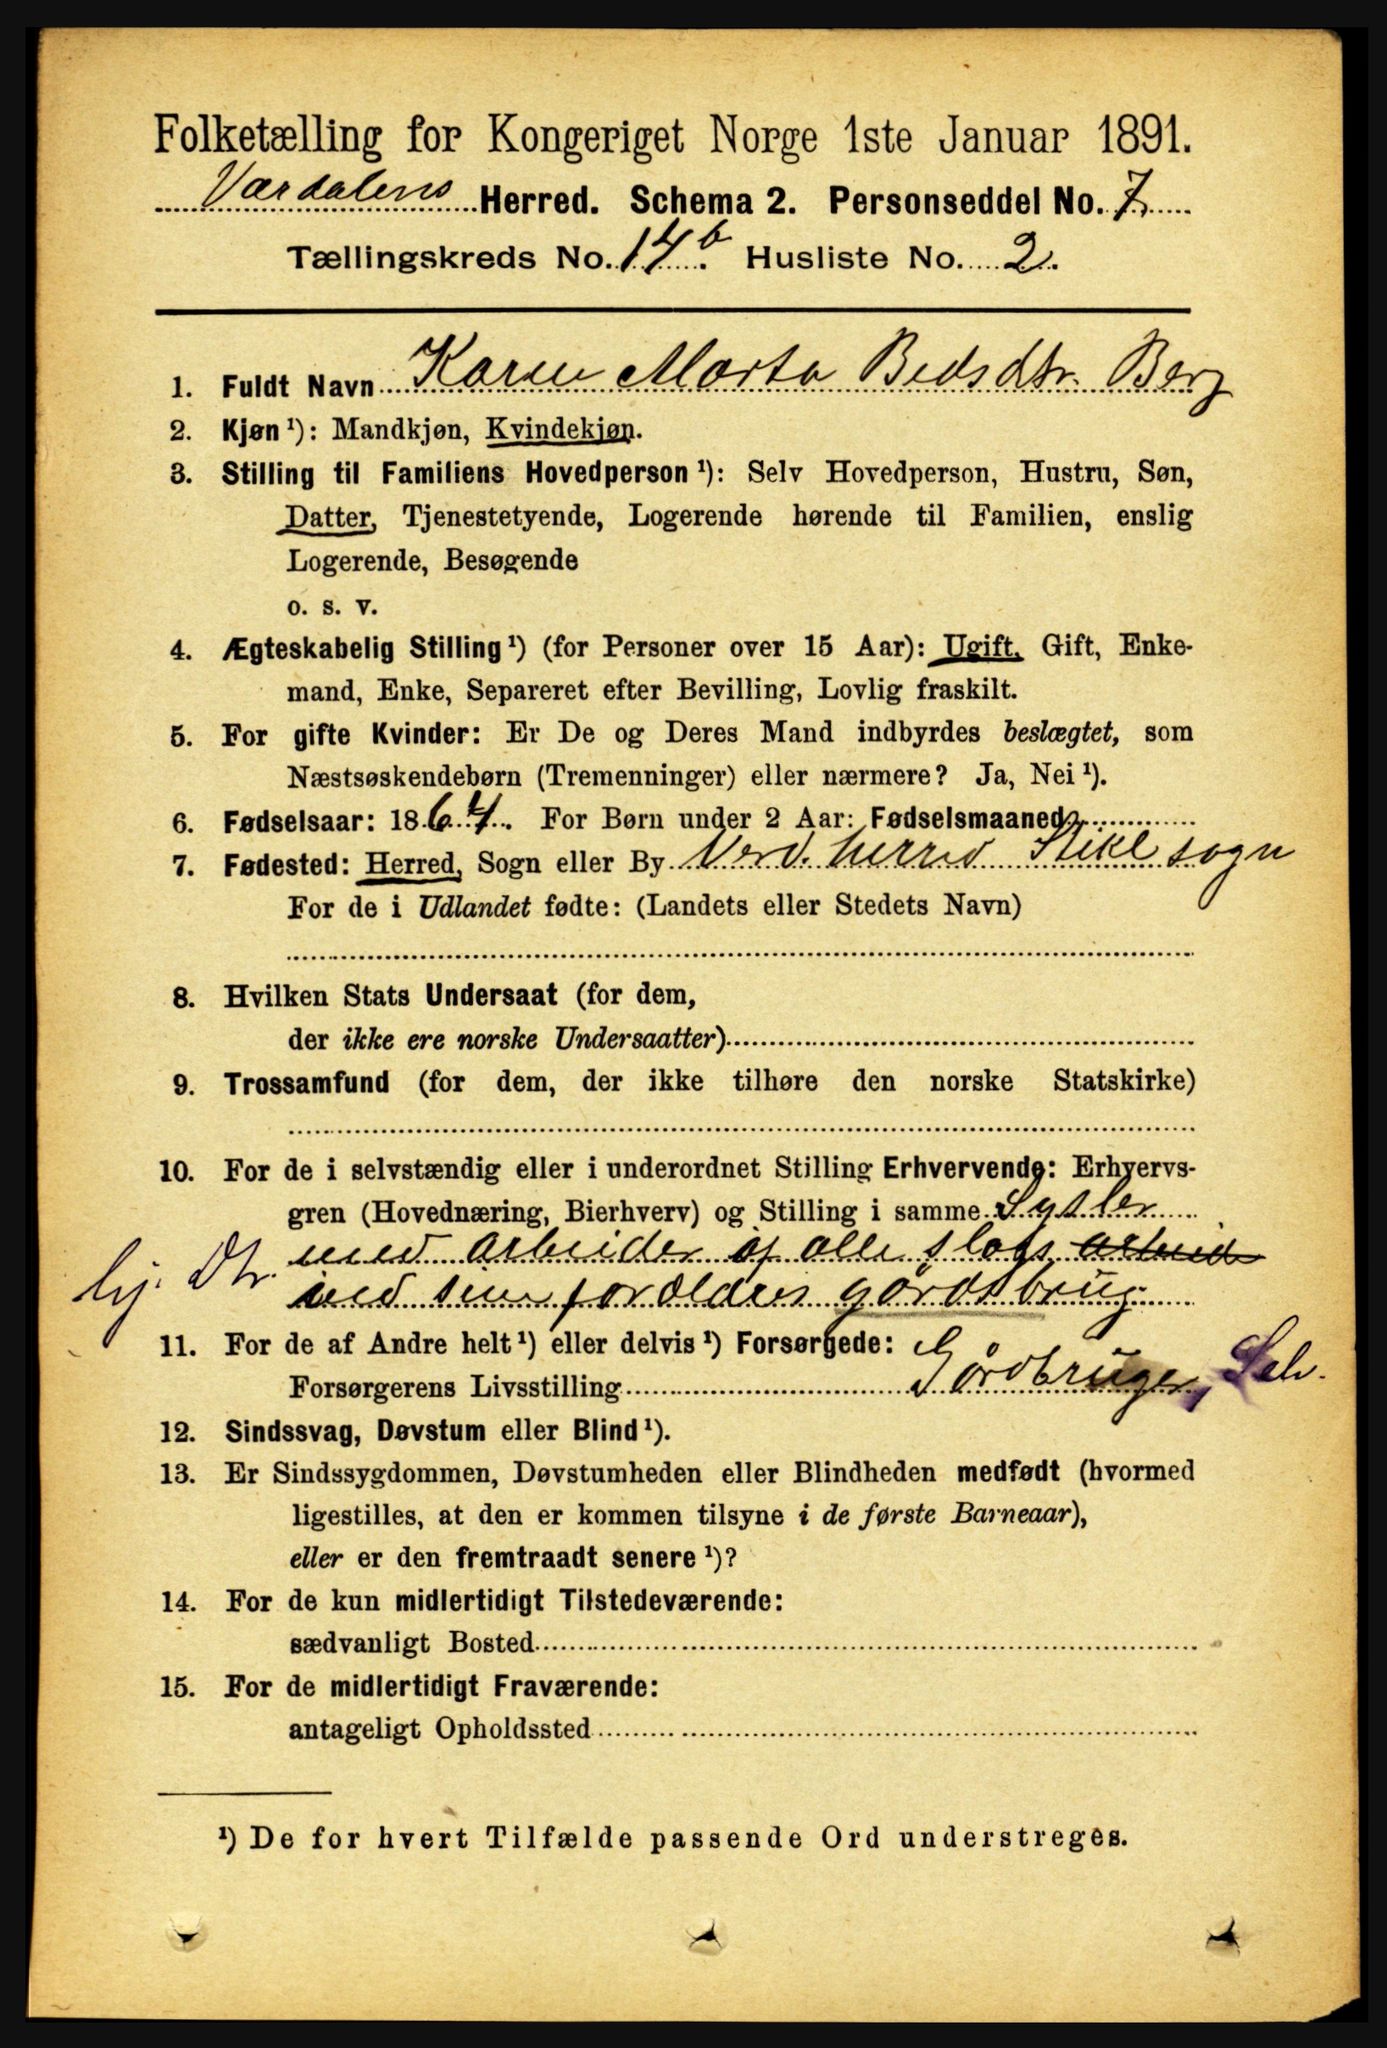 Folketælling for Kongeriget Norge 1ste Januar 1891.
Værdalens Herred. Schema 2. Personseddel No. 7
Tællingskreds No. 14 b. Husliste No. 2.
1. Fuldt Navn Karen Marta Bedsdtr. Berg
2. Kjøn ¹): Mandkjøn, Kvindekjøn.
3. Stilling til Familiens Hovedperson ¹): Selv Hovedperson, Hustru, Søn,
Datter, Tjenestetyende, Logerende hørende til Familien, enslig
Logerende, Besøgende
o. s. v.
4. Ægteskabelig Stilling ¹) (for Personer over 15 Aar): Ugift, Gift, Enke-
mand, Enke, Separeret efter Bevilling, Lovlig fraskilt.
5. For gifte Kvinder: Er De og Deres Mand indbyrdes beslægtet, som
Næstsøskendebørn (Tremenninger) eller nærmere? Ja, Nei ¹).
6. Fødselsaar: 1864. For Børn under 2 Aar: Fødselsmaaned
7. Fødested: Herred, Sogn eller By Verd. herred Stikl sogn
For de i Udlandet fødte: (Landets eller Stedets Navn)
8. Hvilken Stats Undersaat (for dem,
der ikke ere norske Undersaatter)
9. Trossamfund (for dem, der ikke tilhøre den norske Statskirke)
10. For de i selvstændig eller i underordnet Stilling Erhvervende: Erhvervs-
gren (Hovednæring, Bierhverv) og Stilling i samme Sysler
med arbeider af alle slags arbeid
hj. Dtr. ved sine forældres gårdsbrug
11. For de af Andre helt ¹) eller delvis ¹) Forsørgede:
Forsørgerens Livsstilling Gårdbruger, Selv.
12. Sindssvag, Døvstum eller Blind ¹).
13. Er Sindssygdommen, Døvstumheden eller Blindheden medfødt (hvormed
ligestilles, at den er kommen tilsyne i de første Barneaar),
eller er den fremtraadt senere ¹)?
14. For de kun midlertidigt Tilstedeværende:
sædvanligt Bosted
15. For de midlertidigt Fraværende:
antageligt Opholdssted
¹) De for hvert Tilfælde passende Ord understreges.